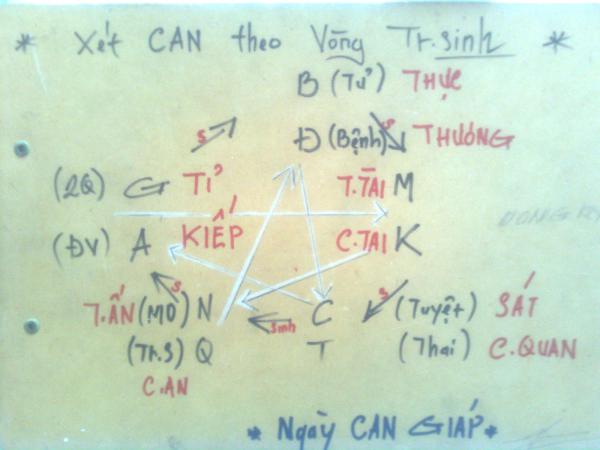 * Xét CAN theo Vòng Tr.sinh *
B (Tử) THỰC
Đ (Bệnh) S THƯƠNG
S
(LQ) G TỈ T.TÀI M
(ĐV) A KIẾP C.TÀI K
S S
T.ẤN (MỘ) N C (Tuyệt) SÁT
sinh
(Tr.S) Q T (Thai) C.QUAN
C.ẤN
* Ngày CAN GIÁP *